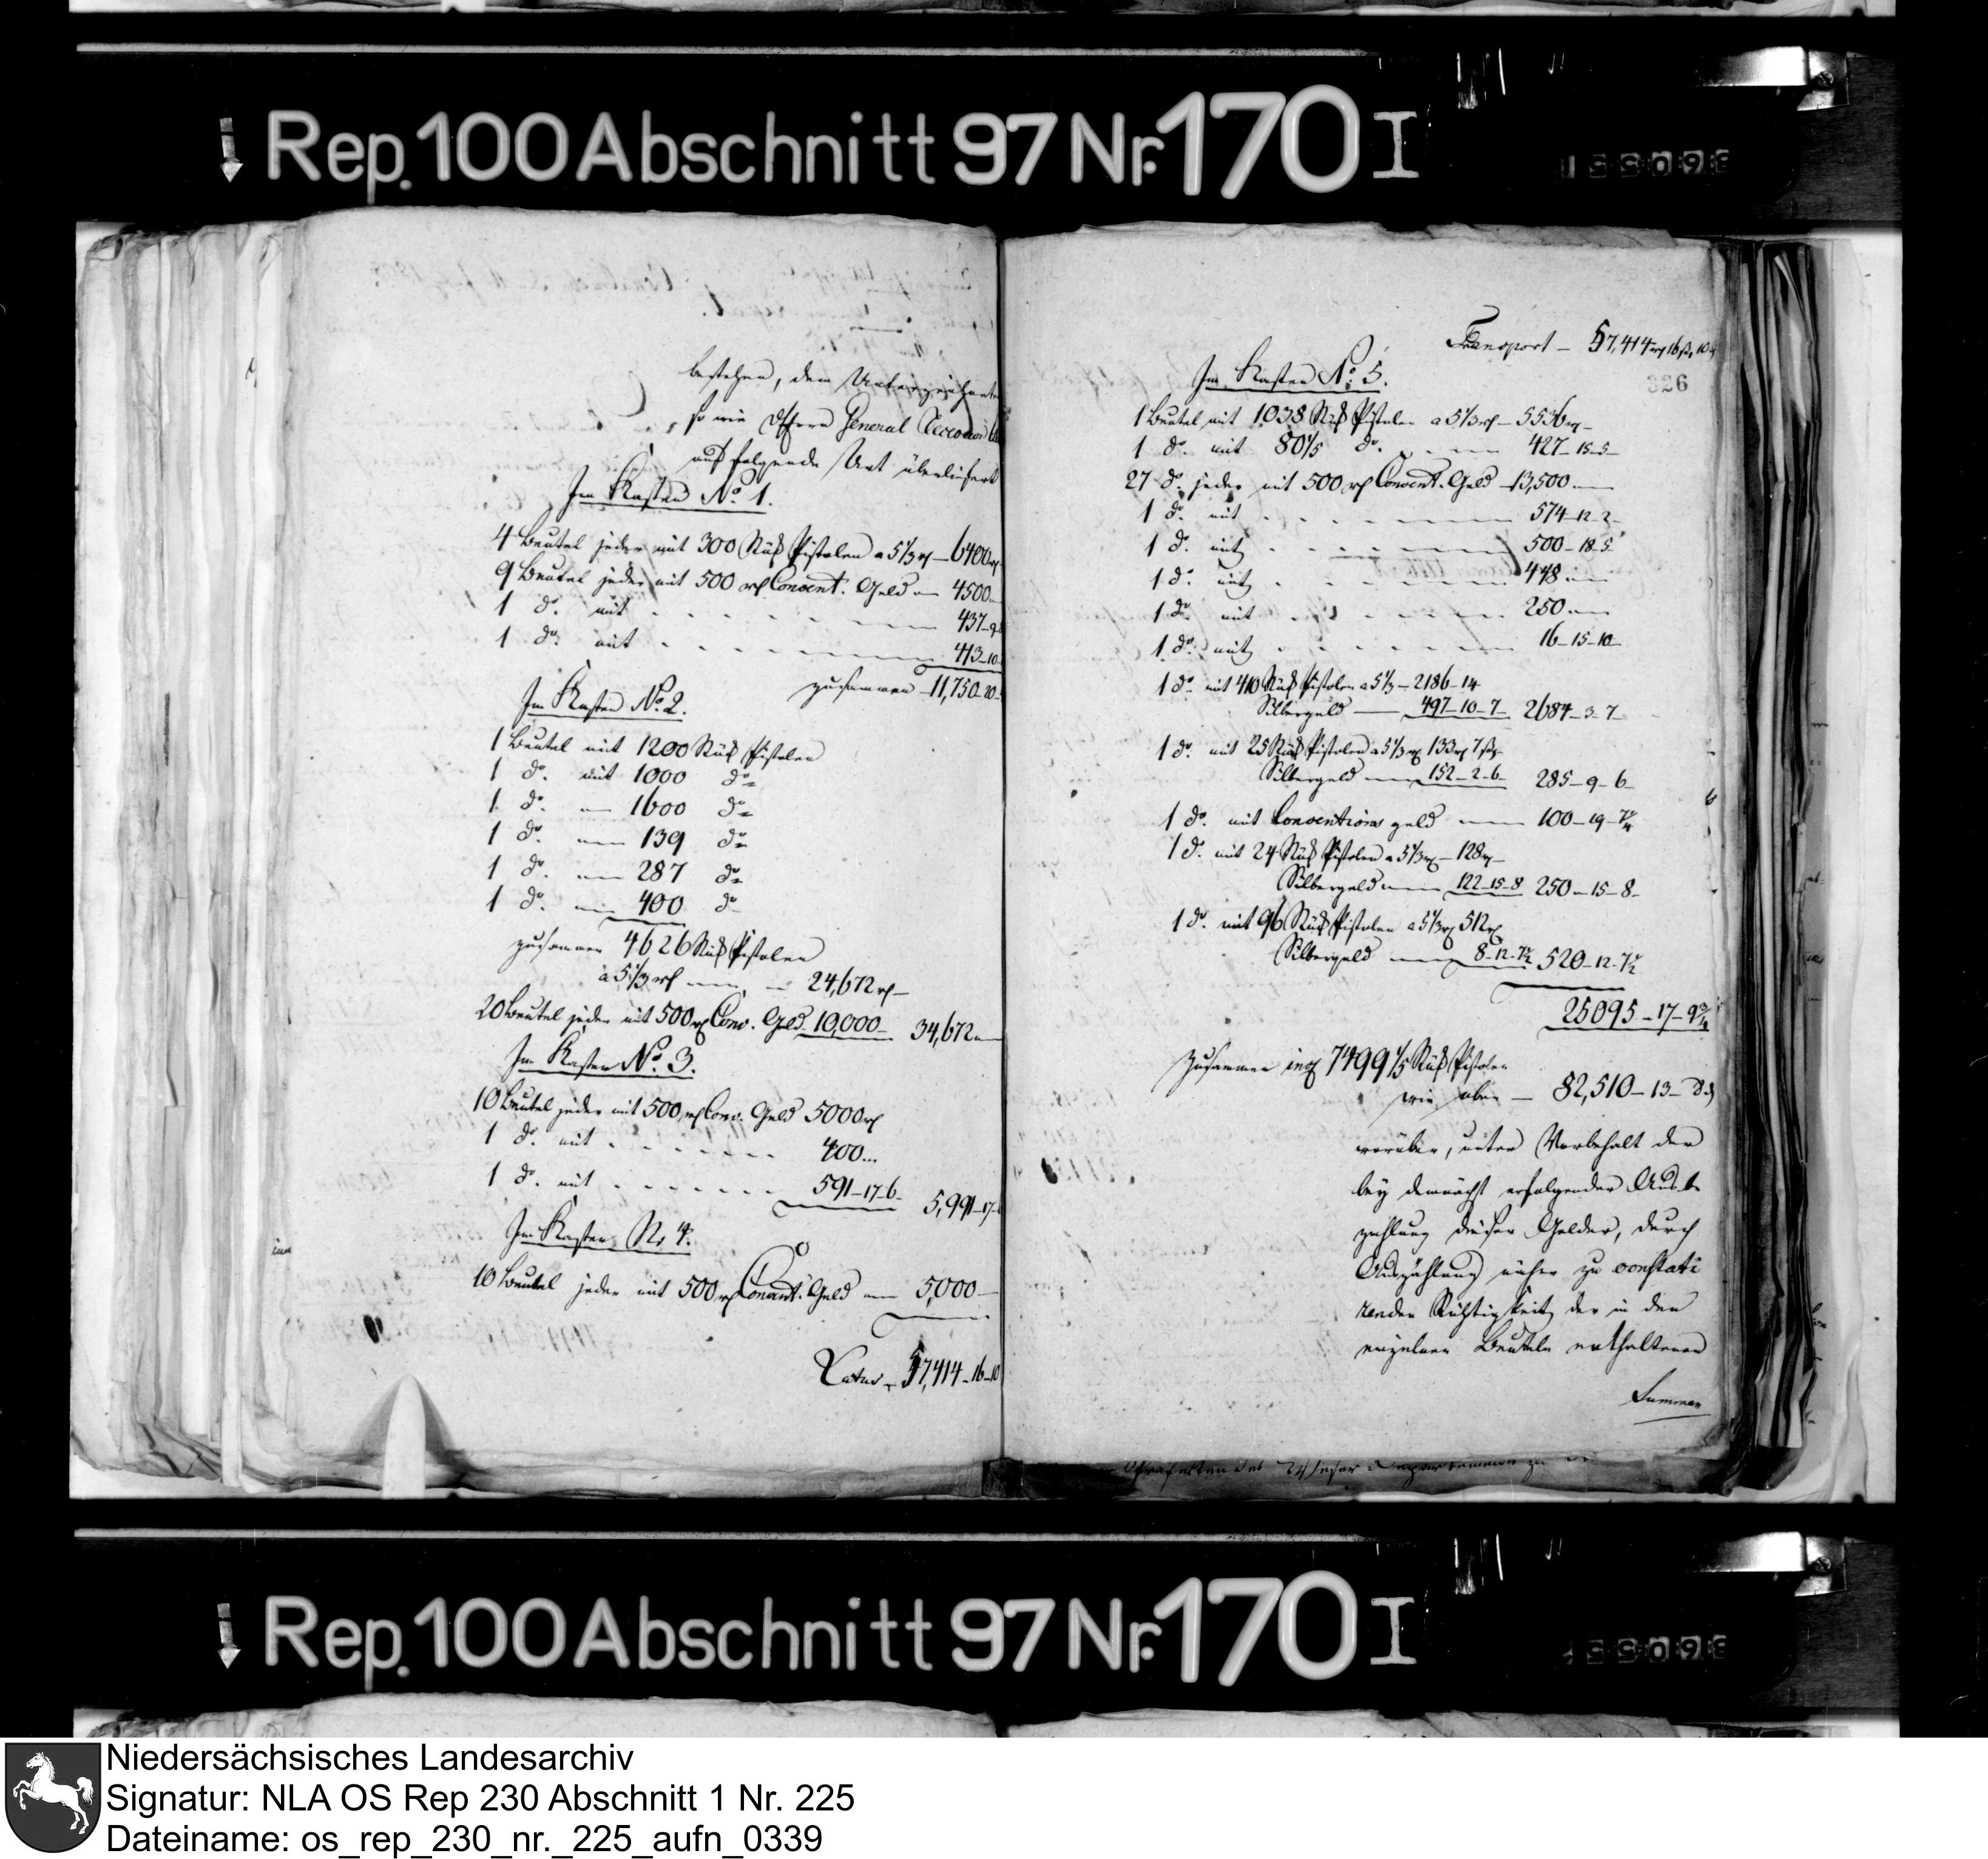 Rep. 100 Abschnitt 97 Nr. 170 I
bestehen, dem Unterzeichneten
so wie dem Herrn General
auf folgende Art überliefert
Im Kasten No. 1.
4 Beutel jeder mit 300 Stück Pistolen a 5 1/3 rl — 6400 rl
9 Beutel jeder mit 500 rl Convent. Geld — 4500 —
1 do. mit . . . . . . 437 - 9
1 do. mit . . . . . . 413 - 10
zusammen — 11,750 - 20
Im Kasten No. 2.
1 Beutel mit 1200 Stück Pistolen
1 do. mit 1000 do
1 do. — 1600 do
1 do. — 139 do
1 do. — 287 do
1 do. — 400 do
zusammen 4626 Stück Pistolen
a 5 1/3 rl — — 24,672 rl —
20 Beutel jeder mit 500 rl Conv. Geld 10,000 — 34,672 —
Im Kasten No. 3.
10 Beutel jeder mit 500 rl Conv. Geld 5000 rl
1 do. mit . . . . . . 400 —
1 do. mit . . . . . . 591 - 17 - 6 5,991 - 17
Im Kasten Nr. 4.
10 Beutel jeder mit 500 rl Convent. Geld — 5,000 —
Latus — 57,414 - 16 - 10
Transport — 57,414 rl 16 ß 10
326
Im Kasten No. 5.
1 Beutel mit 1038 Stück Pistolen a 5 1/3 rl — 5536 rl —
1 do. mit 80 1/5 do. — 427 - 15 - 5
27 do. jeder mit 500 rl Convent. Geld — 13,500 —
1 do. mit . . . . . . 574 - 12 - 2
1 do. mit . . . . . . 500 - 18 - 5
1 do. mit . . . . . . 448 —
1 do. mit . . . . . . 250 —
1 do. mit . . . . . . 16 - 15 - 10
1 do. mit 410 Stück Pistolen a 5 1/3 — 2186 - 14
Silbergeld — 497 - 10 - 7 2684 - 3 - 7
1 do. mit 25 Stück Pistolen a 5 1/3 rl 133 rl 7 ß
Silbergeld — 152 - 2 - 6 285 - 9 - 6
1 do. mit Conventions geld — 100 - 19 - 7 1/4
1 do. mit 24 Stück Pistolen a 5 1/3 rl — 128 rl —
Silbergeld — 122 - 15 - 8 250 - 15 - 8
1 do. mit 96 Stück Pistolen a 5 1/3 rl 512 rl
Silbergeld — 8 - 12 - 7 1/2 520 - 12 - 7 1/2
25095 - 17 - 9 3/4
Zusammen 7499 1/5 Stück Pistolen
wie oben — 82,510 - 13 -
worüber, unter Vorbehalt der
bey demnächst erfolgender Aus
zahlung dieser Gelder, durch
Auszählung näher zu constati
renden Richtigkeit der in den
einzelnen Beuteln enthaltenen
Summen
Rep. 100 Abschnitt 97 Nr. 170 I
Niedersächsisches Landesarchiv
Signatur: NLA OS Rep 230 Abschnitt 1 Nr. 225
Dateiname: os_rep_230_nr._225_aufn_0339